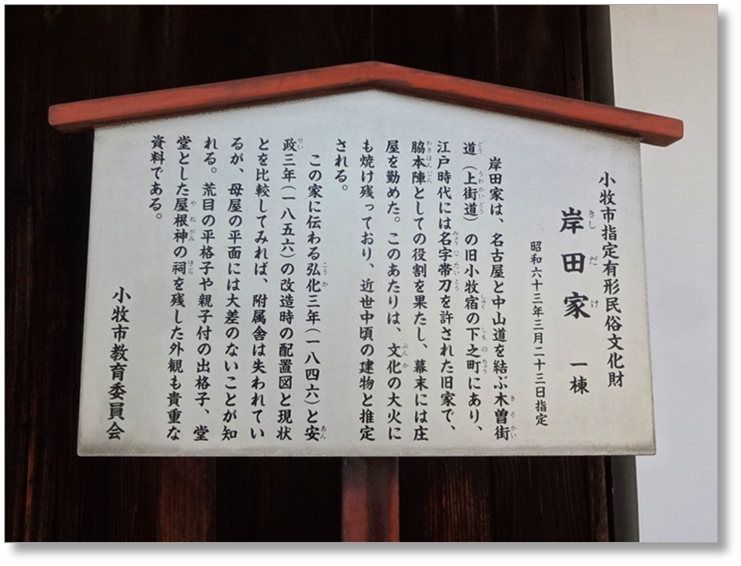 小牧市指定有形民俗文化財
岸田家 一棟
昭和六十三年三月二十三日指定
岸田家は、名古屋と中山道を結ぶ木曽街
道（上街道）の旧小牧宿の下之町にあり、
江戸時代には名字帯刀を許された旧家で、
脇本陣としての役割を果たし、幕末には庄
屋を勤めた。このあたりは、文化の大火に
も焼け残っており、近世中頃の建物と推定
される。
この家に伝わる弘化三年（一八四六）と安
政三年（一八五六）の改造時の配置図と現状
とを比較してみれば、附属舎は失われてい
るが、母屋の平面には大差のないことが知
れる。荒目の平格子や親子付の出格子、堂
堂とした屋根神の祠を残した外観も貴重な
資料である。
小牧市教育委員会